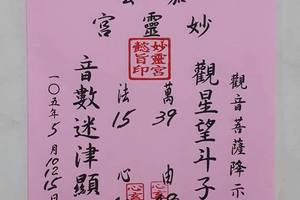 妙靈宮
妙靈宮
懿旨印
觀音菩薩降示
觀星望斗子
萬由
39
法心
15
音數迷津顯
一〇五年5月10 12 15日